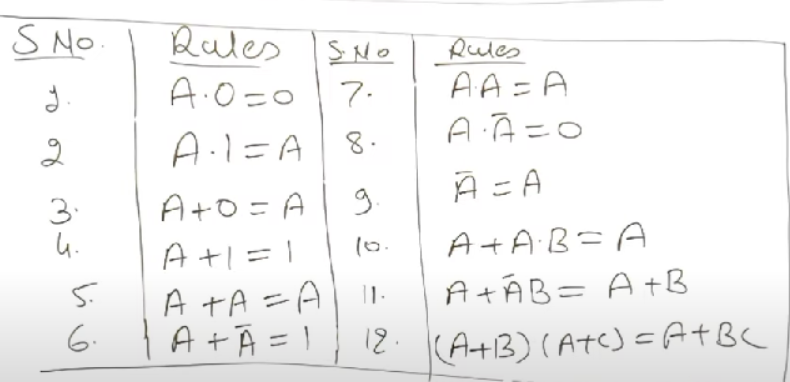 S No. Rules S.No Rules
1. A·0=0 7. A.A = A
2 A·1=A 8. A·Ā=0
3. A+0=A 9. Ā=A
4. A+1=1 10. A+A·B=A
5. A+A=A 11. A+ĀB= A+B
6. A+Ā=1 12. (A+B)(A+C)=A+BC